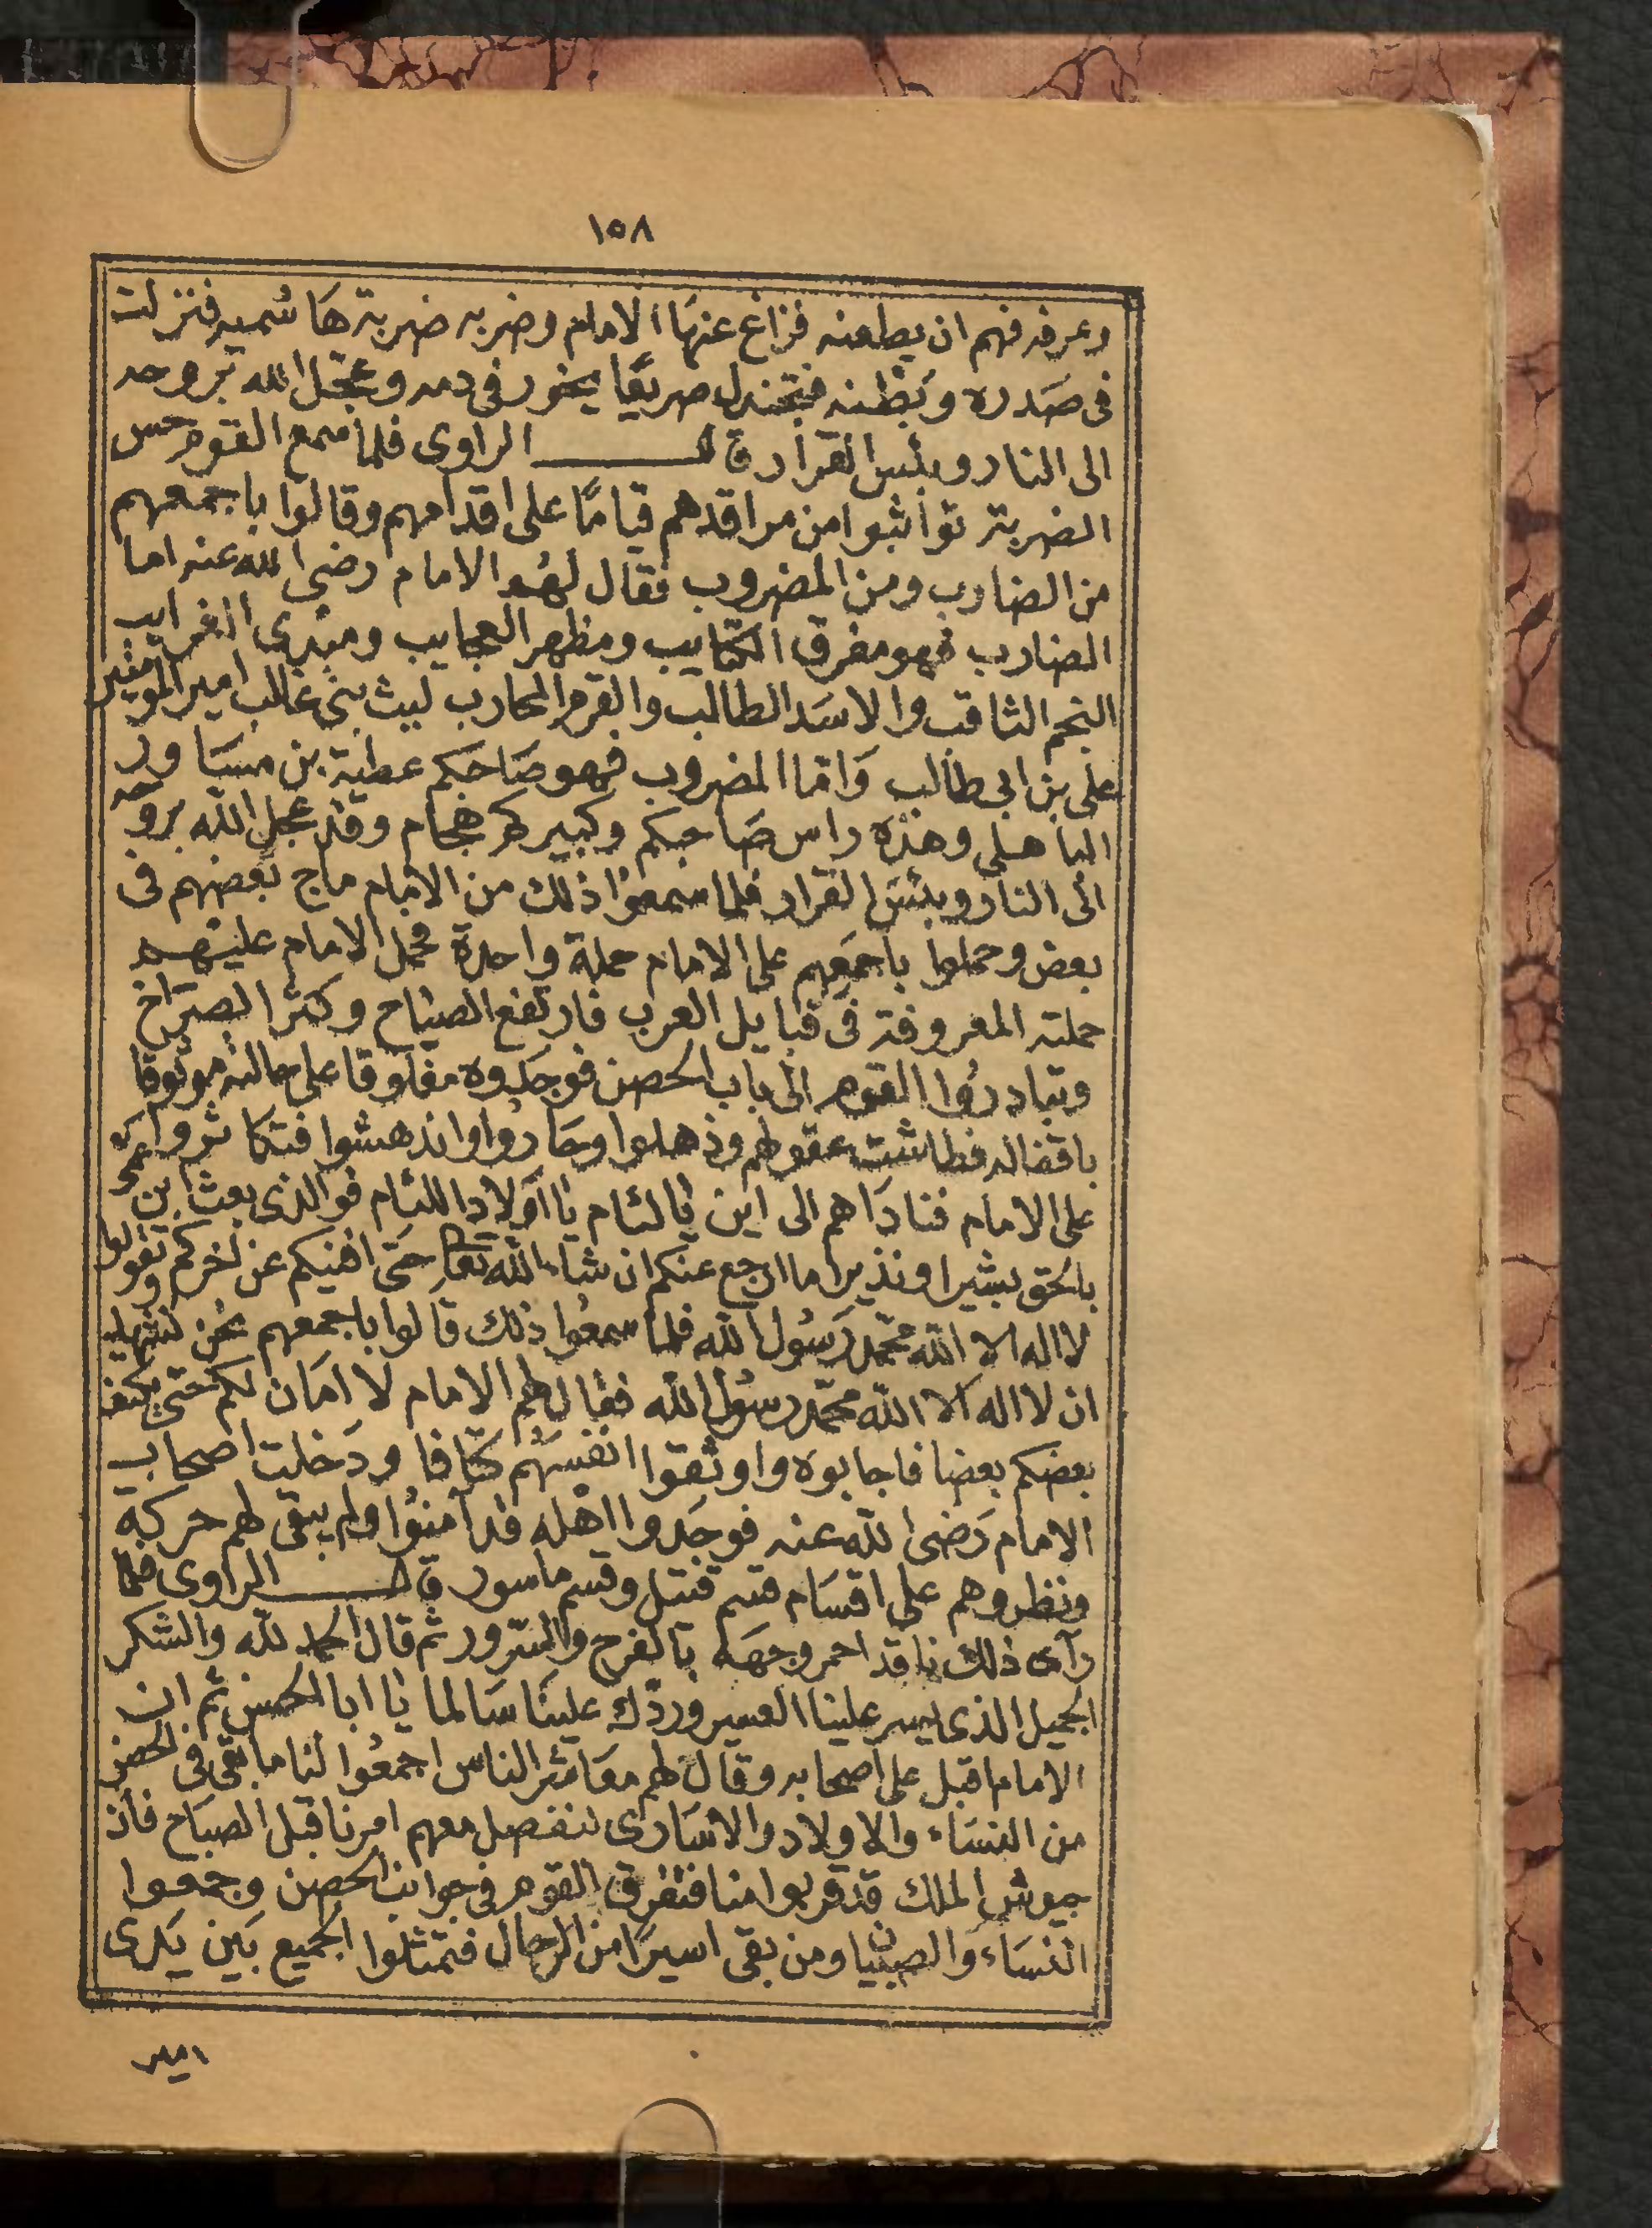 ١٥٨
وعرفه فهم ان يطعنه فزاغ عنها الامام وضربه ضربة هاشميه فنزلت
فى صدره وبطنه فتجندل صريعًا يخور فى دمه وعجل الله بروحه
الى النار وبئس القرار قال الراوى فلما سمع القوم حس
الضربة تواثبوا من مراقدهم قيامًا على اقدامهم وقالوا باجمعهم
من الضارب ومن المضروب فقال لهم الامام رضى الله عنه اما
الضارب فهو مفرق الكتايب ومظهر العجايب ومبدى الغرايب
النجم الثاقب والاسد الطالب والقرم المحارب ليث بنى غالب امير المومنين
على بن ابى طالب واما المضروب فهو صاحبكم عطية بن مساور
الباهلى وهذه راس صاحبكم وكبيركم هجام وقد عجل الله بروحه
الى النار وبئس القرار فلما سمعوا ذلك من الامام ماج بعضهم فى
بعض وحملوا باجمعهم على الامام حملة واحدة فحمل الامام عليهم
حملته المعروفة فى قبايل العرب فارتفع الصياح وكثر الصراخ
وتبادروا القوم الى باب الحصن فوجدوه مغلوقا على حالته موثوقا
باقفاله فطاشت عقولهم وذهلوا وحاروا واندهشوا فتكاثروا
على الامام فناداهم الى اين يا لئام يا اولاد اللئام فوالذى بعث ابن عمى
بالحق بشيرا ونذيرا ما ارجع عنكم ان شاء الله تعالى حتى افنيكم عن اخركم وتقولوا
لا اله الا الله محمد رسول الله فلما سمعوا ذلك قالوا باجمعهم نحن نشهد
ان لا اله الا الله محمد رسول الله فقال لهم الامام لا امان لكم حتى يكتف
بعضكم بعضا فاجابوه واوثقوا انفسهم كتافا ودخلت اصحاب
الامام رضى الله عنه فوجدوا اهله قد آمنوا ولم يبقى لهم حركة
ونظروهم على اقسام قسم قتيل وقسم ماسور قال الراوى فلما
رآى ذلك ناقد احمر وجهه بالفرح والسرور ثم قال الحمد لله والشكر
الجميل الذى يسر علينا العسير وردك علينا سالما يا ابا الحسن ثم ان
الامام اقبل على اصحابه وقال لهم معاشر الناس اجمعوا لنا ما بقى فى الحصن
من النساء والاولاد والاسارى لنفصل معهم امرنا قبل الصباح فان
جيوش الملك قد قربوا منا فتفرق القوم فى جوانب الحصن وجمعوا
النساء والصبيان ومن بقى اسيرا من الرجال فتمثلوا الجميع بين يدى
امير